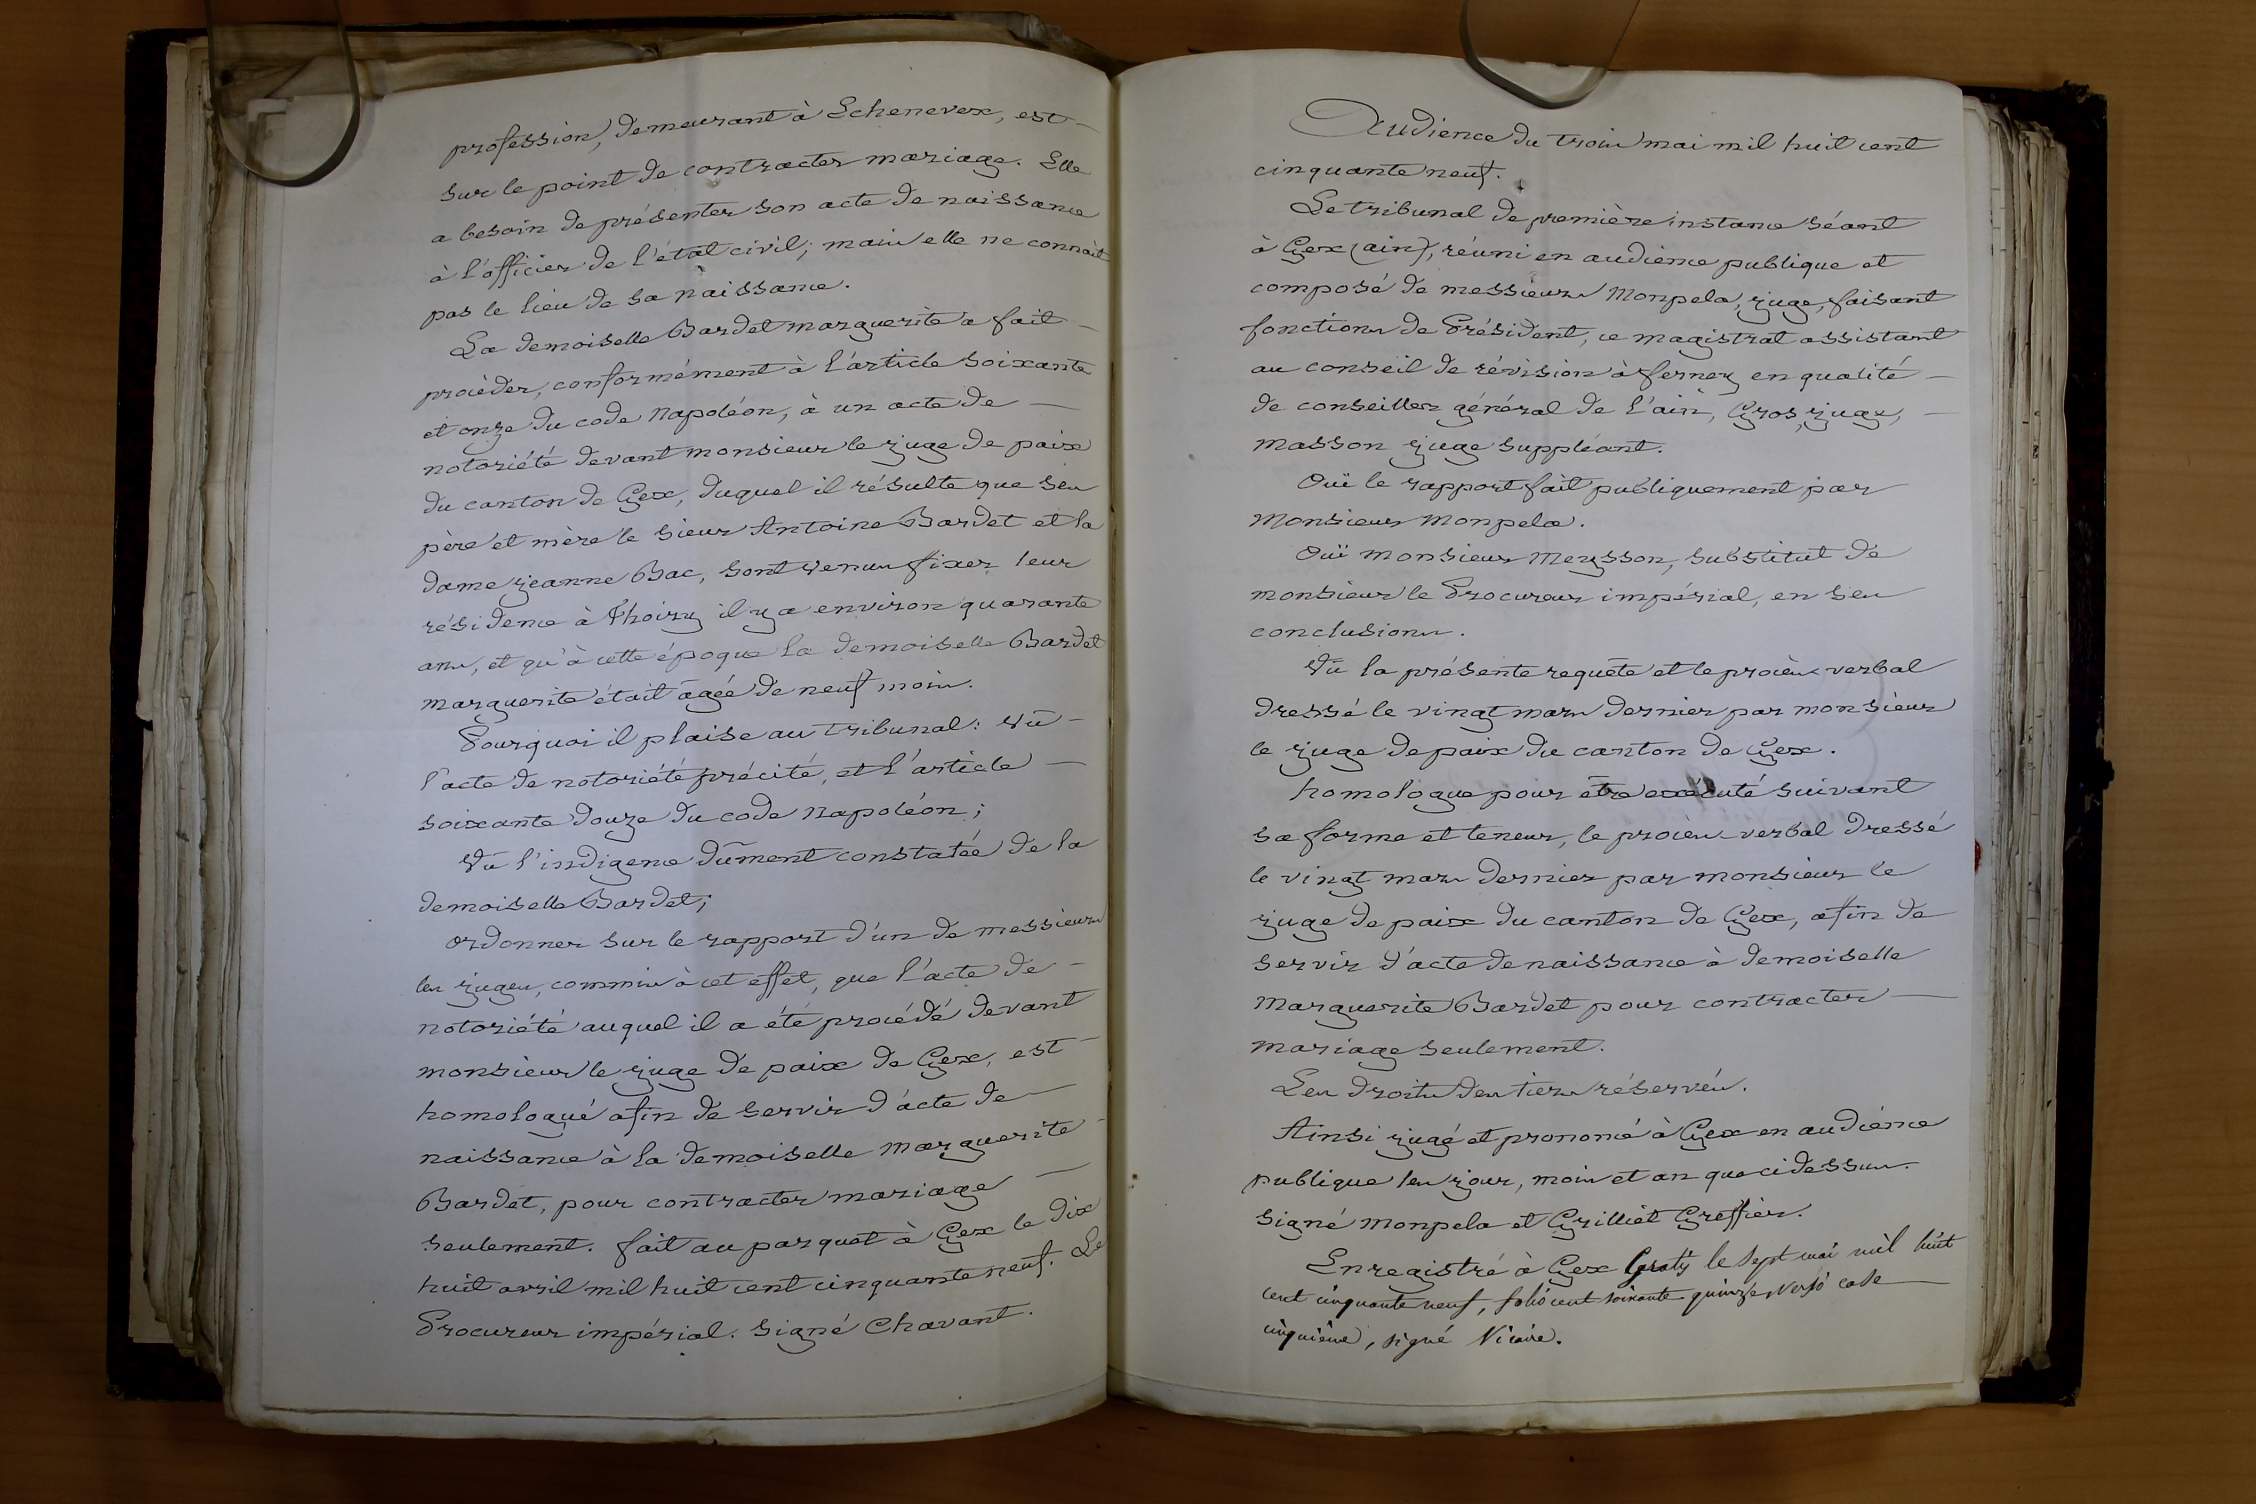 profession, demeurant à Echenevex, est —
sur le point de contracter mariage. Elle
a besoin de présenter son acte de naissance
à l'officier de l'état civil; mais elle ne connait
pas le lieu de sa naissance.
La demoiselle Bardet marguerite a fait —
procéder, conformément à l'article soixante
et onze du code Napoléon, à un acte de —
notoriété devant monsieur le juge de paix
du canton de Gex, duquel il résulte que ses
père et mère le sieur Antoine Bardet et la
dame jeanne Bac, sont venus fixer leur
résidence à Thoiry il y a environ quarante
ans, et qu'à cette époque la demoiselle Bardet
marguerite était agée de neuf mois.
Pourquoi il plaise au tribunal: vu —
l'acte de notoriété précité, et l'article —
soixante douze du code napoléon;
Vu l'indigence dument constatée de la
demoiselle Bardet;
ordonner sur le rapport d'un de messieurs
les juges, commis à cet effet, que l'acte de —
notoriété auquel il a été procédé devant
monsieur le juge de paix de Gex, est —
homologué afin de servir d'acte de —
naissance à la demoiselle marguerite —
Bardet, pour contracter mariage —
seulement. fait au parquet à Gex le dix
huit avril mil huit cent cinquante neuf. Le
Procureur impérial. signé Chavant.
Audience du trois mai mil huit cent
cinquante neuf.
Le tribunal de première instance séant
à Gex (ain), réuni en audience publique et
composé de messieurs Monpela, juge, faisant
fonctions de Président, ce magistrat assistant
au conseil de révision à ferney en qualité —
de conseiller général de l'ain, Gros, juge, —
masson juge suppléant.
Ouï le rapport fait publiquement par
Monsieur Monpela.
Ouï monsieur Meysson, substitut de
monsieur le Procureur impérial, en ses
conclusions.
Vu la présente requête et le procès verbal
dressé le vingt mars dernier par monsieur
le juge de paix du canton de Gex.
homologue pour être exécuté suivant
sa forme et teneur, le procès-verbal dressé
le vingt mars dernier par monsieur le
juge de paix du canton de Gex, afin de
servir d'acte de naissance à demoiselle
marguerite Bardet pour contracter —
mariage seulement.
Les droits des tiers réservés.
Ainsi jugé et prononcé à Gex en audience
publique les jour, mois et an que ci dessus.
signé monpela et Grilliet Greffier.
Enregistré à Gex Gratis le sept mai mil huit
cent cinquante neuf, folio cent soixante quinze verso case —
cinquième, signé Vicaire.